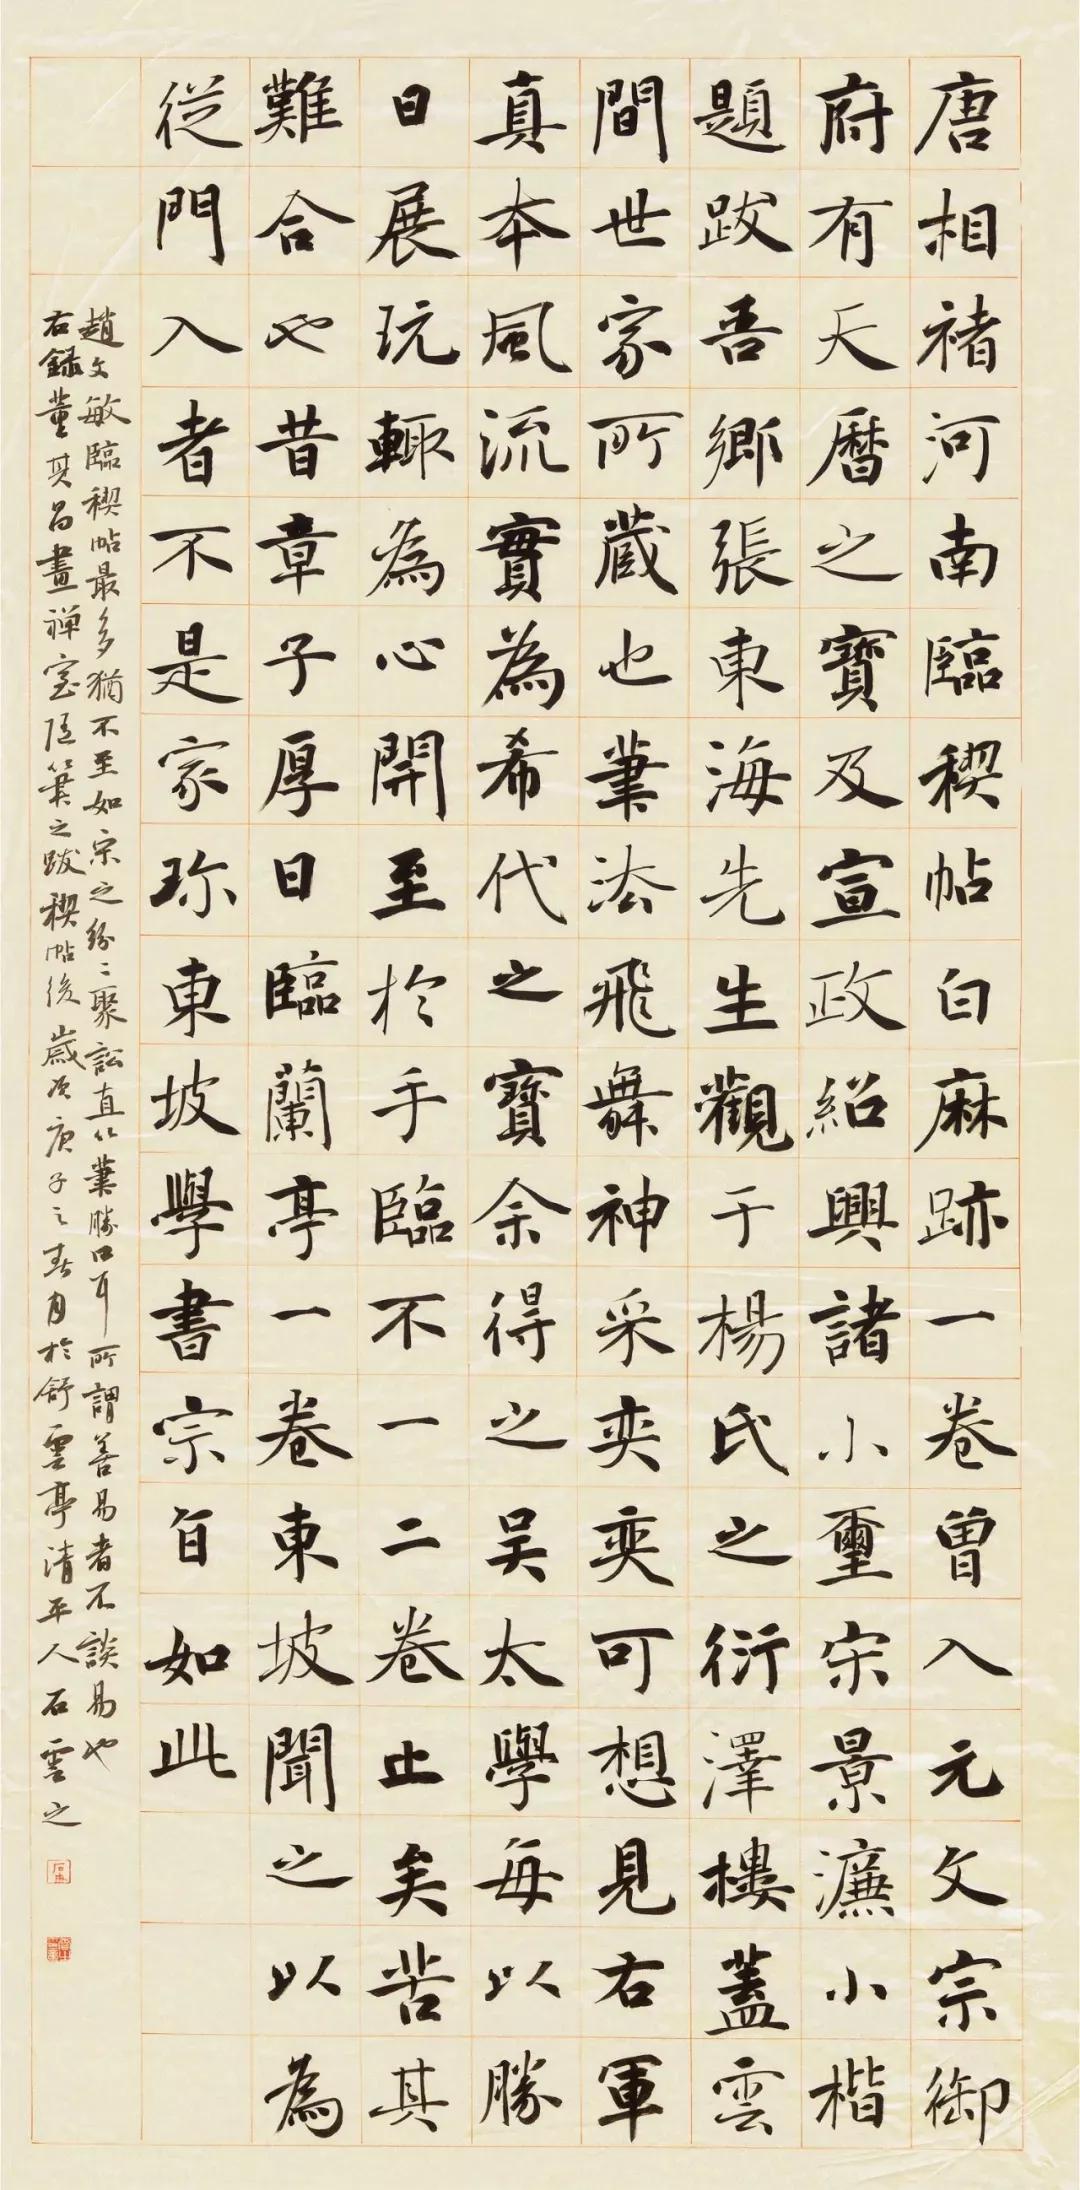 唐相褚河南臨禊帖白麻跡一卷曾入元文宗御
府有天曆之寶及宣政紹興諸小璽宋景濂小楷
題跋吾鄉張東海先生觀于楊氏之衍澤樓蓋雲
間世家所藏也筆法飛舞神采奕奕可想見右軍
真本風流實為希代之寶余得之吳太學每以勝
日展玩輒為心開至於手臨不一二卷止矣苦其
難合也昔章子厚日臨蘭亭一卷東坡聞之以為
從門入者不是家珎東坡學書宗旨如此
趙文敏臨禊帖最多猶不至如宋之紛〻聚訟直以筆勝口耳所謂善易者不談易也
右錄董其昌畫禅室隨筆之跋禊帖後歲次庚子之春月於舒雲亭清平人石雲之